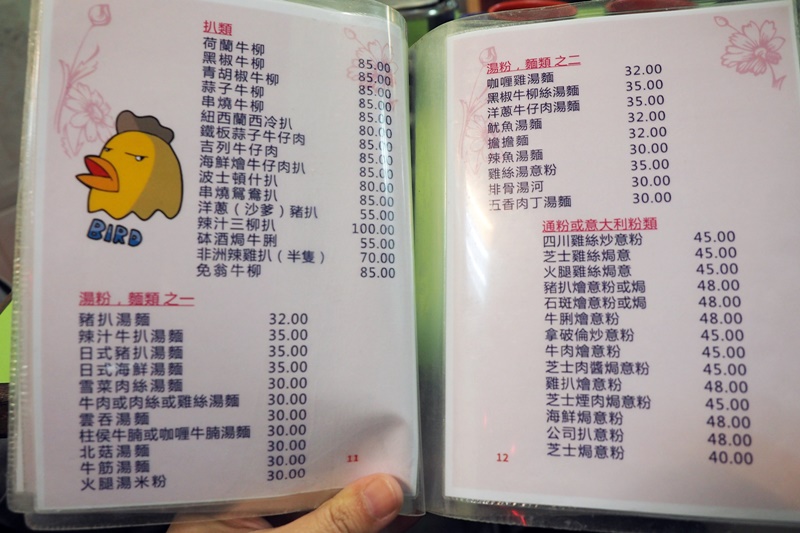 扒類
荷蘭牛柳 85.00
黑椒牛柳 85.00
青胡椒牛柳 85.00
蒜子牛柳 85.00
串燒牛柳 85.00
紐西蘭西冷扒 80.00
鐵板蒜子牛仔肉 85.00
吉列牛仔肉 85.00
海鮮燴牛仔肉扒 85.00
波士頓什扒 80.00
串燒鴛鴦扒 85.00
洋蔥（沙爹）豬扒 55.00
辣汁三柳扒 100.00
砵酒焗牛脷 55.00
非洲辣雞扒（半隻） 70.00
免翁牛柳 85.00
BIRD
湯粉，麵類 之一
豬扒湯麵 32.00
辣汁牛扒湯麵 35.00
日式豬扒湯麵 35.00
日式海鮮湯麵 35.00
雪菜肉絲湯麵 30.00
牛肉或肉絲或雞絲湯麵 30.00
雲吞湯麵 30.00
柱侯牛腩或咖喱牛腩湯麵 30.00
北菇湯麵 30.00
牛筋湯麵 30.00
火腿湯米粉 30.00
11
湯粉，麵類 之二
咖喱雞湯麵 32.00
黑椒牛柳絲湯麵 35.00
洋蔥牛仔肉湯麵 35.00
魷魚湯麵 32.00
擔擔麵 32.00
辣魚湯麵 30.00
雞絲湯意粉 35.00
排骨湯河 30.00
五香肉丁湯麵 30.00
通粉或意大利粉類
四川雞絲炒意粉 45.00
芝士雞絲焗意 45.00
火腿雞絲焗意 45.00
豬扒燴意粉或焗 48.00
石斑燴意粉或焗 48.00
牛脷燴意粉 48.00
拿破倫炒意粉 45.00
牛肉燴意粉 45.00
芝士肉醬焗意粉 45.00
雞扒燴意粉 48.00
芝士煙肉焗意粉 45.00
海鮮焗意粉 48.00
公司扒意粉 48.00
芝士焗意粉 40.00
12